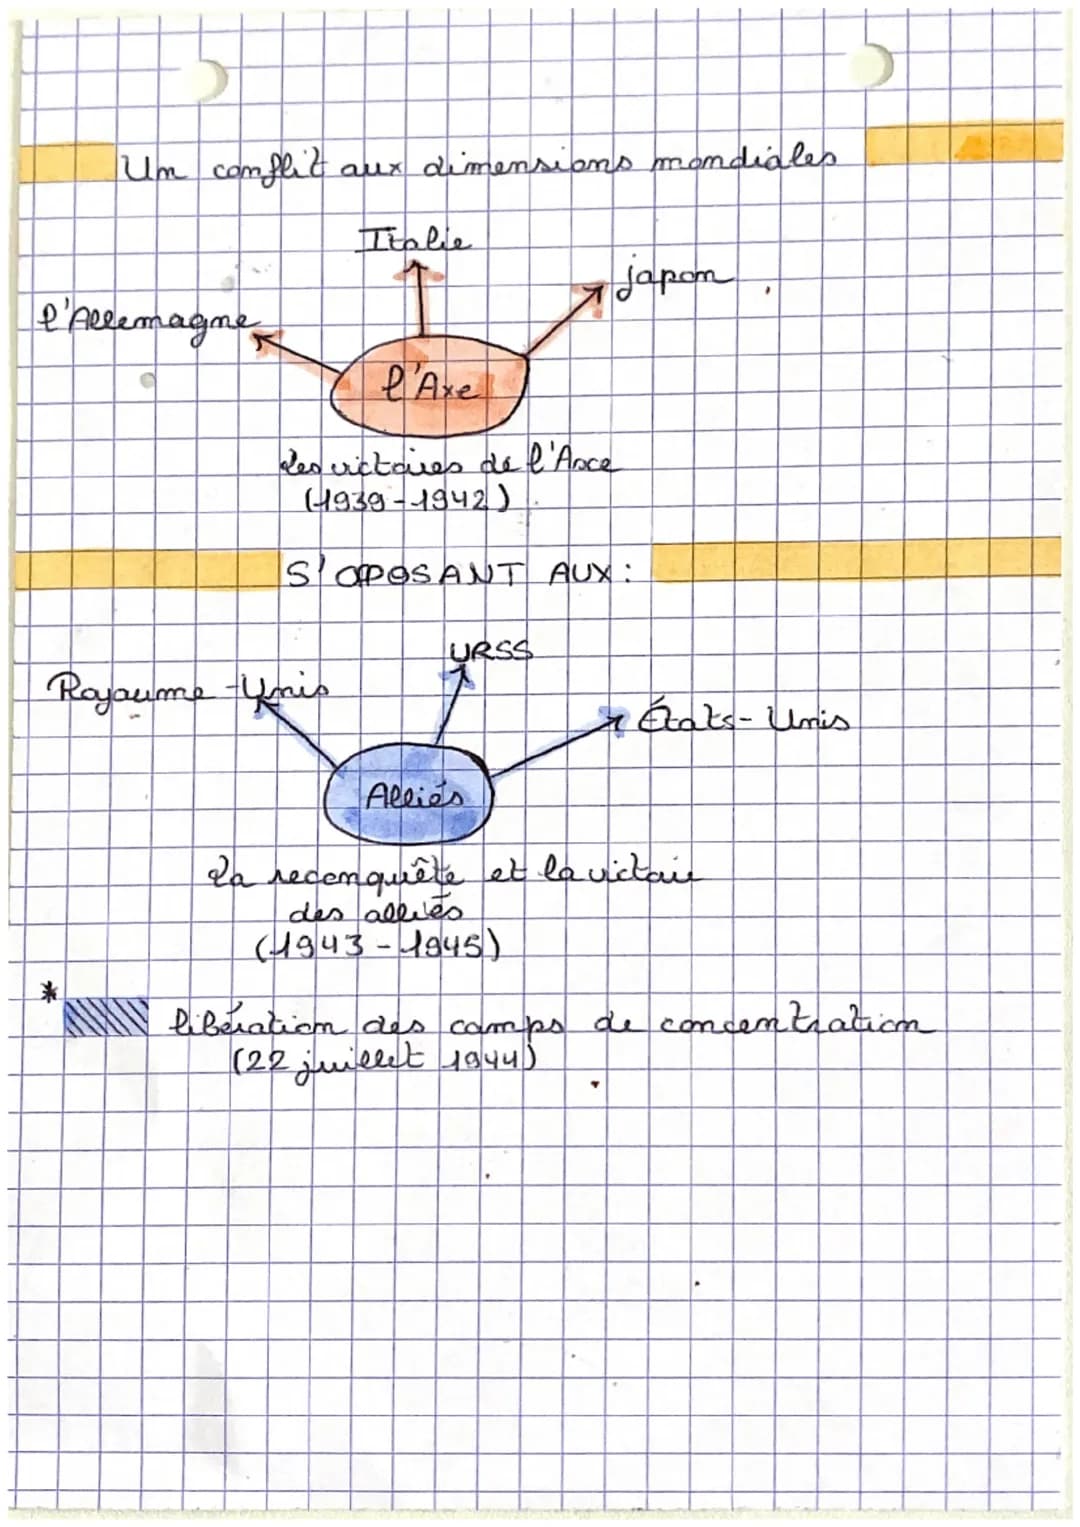 Un conflit aux dimensions mondiales
Italie
japon
l'Allemagne
l'Axe
Les victoires de l'Axe
(1939-1942)
S'OPOSANT AUX :
URSS
Royaume-Unis
États-Unis
Alliés
La reconquête et la victoire
des alliés
(1943-1945)
*
libération des camps de concentration
(22 juillet 1944)